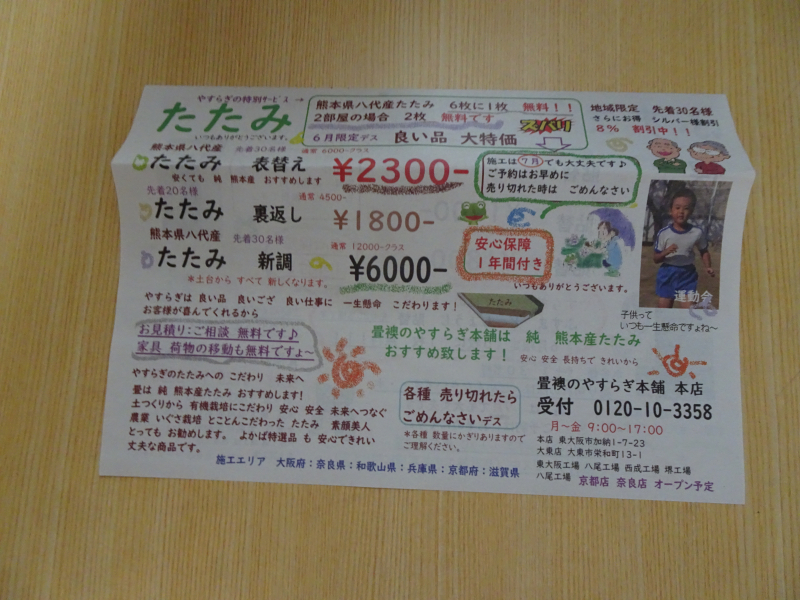 やすらぎの特別サービス→
たたみ
いつもありがとうございます。
熊本県八代産たたみ 6枚に1枚 無料！！
2部屋の場合 2枚 無料です
6月限定デス 良い品 大特価 ズバリ
地域限定 先着30名様
さらにお得 シルバー様割引
8% 割引中！！
熊本県八代産 先着30名様 通常 6000-クラス
たたみ 表替え ¥2300-
安くても 純 熊本産 おすすめします
施工は7月でも大丈夫です♪
ご予約はお早めに
売り切れた時は ごめんなさい
先着20名様 通常 4500-
たたみ 裏返し ¥1800-
熊本県八代産 先着30名様 通常 12000-クラス
たたみ 新調 ¥6000-
＊土台から すべて 新しくなります。
安心保障
1年間付き
いつもありがとうございます。
運動会
子供って
いつも一生懸命ですよね〜
やすらぎは 良い品 良いござ 良い仕事に 一生懸命 こだわります！
お客様が喜んでくれるから
たたみ
お見積り:ご相談 無料です♪
家具 荷物の移動も無料ですょ〜
畳襖のやすらぎ本舗は 純 熊本産たたみ
おすすめ致します！ 安心 安全 長持ちで きれいから
やすらぎのたたみへの こだわり 未来へ
畳は 純 熊本産たたみ おすすめします!
土つくりから 有機栽培にこだわり 安心 安全 未来へつなぐ
農業 いぐさ栽培 とことんこだわった たたみ 素顔美人
とっても お勧めします。 よかば特選品 も 安心できれい
丈夫な商品です。
各種 売り切れたら
ごめんなさいデス
＊各種 数量にかぎりありますので
ご理解ください。
畳襖のやすらぎ本舗 本店
受付 0120-10-3358
月〜金 9:00〜17:00
本店 東大阪市加納1-7-23
大東店 大東市栄和町13-1
東大阪工場 八尾工場 西成工場 堺工場
八尾工場 京都店 奈良店 オープン予定
施工エリア 大阪府:奈良県:和歌山県:兵庫県:京都府:滋賀県